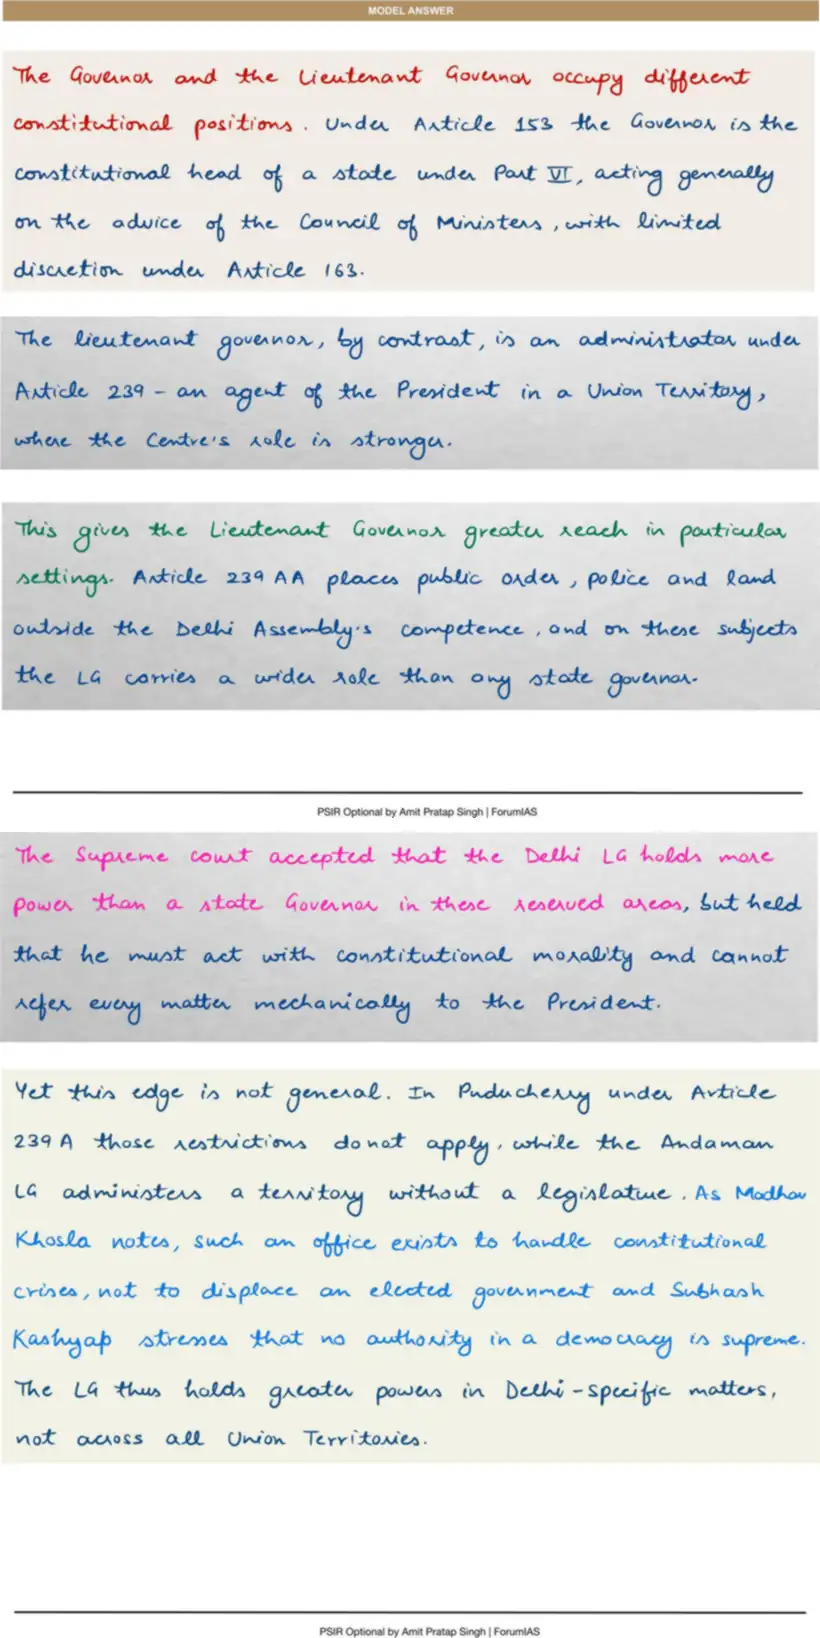 MODEL ANSWER
The Governor and the Lieutenant Governor occupy different
constitutional positions. Under Article 153 the Governor is the
constitutional head of a state under Part VI, acting generally
on the advice of the Council of Ministers, with limited
discretion under Article 163.
The lieutenant governor, by contrast, is an administrator under
Article 239 – an agent of the President in a Union Territory,
where the Centre's role is stronger.
This gives the Lieutenant Governor greater reach in particular
settings. Article 239 AA places public order, police and land
outside the Delhi Assembly's competence, and on these subjects
the LG carries a wider role than any state governor.
PSIR Optional by Amit Pratap Singh | ForumIAS
The Supreme court accepted that the Delhi LG holds more
power than a state Governor in these reserved areas, but held
that he must act with constitutional morality and cannot
refer every matter mechanically to the President.
Yet this edge is not general. In Puducherry under Article
239 A those restrictions do not apply, while the Andaman
LG administers a territory without a legislature. As Madhav
Khosla notes, such an office exists to handle constitutional
crises, not to displace an elected government and Subhash
Kashyap stresses that no authority in a democracy is supreme.
The LG thus holds greater powers in Delhi-specific matters,
not across all Union Territories.
PSIR Optional by Amit Pratap Singh | ForumIAS